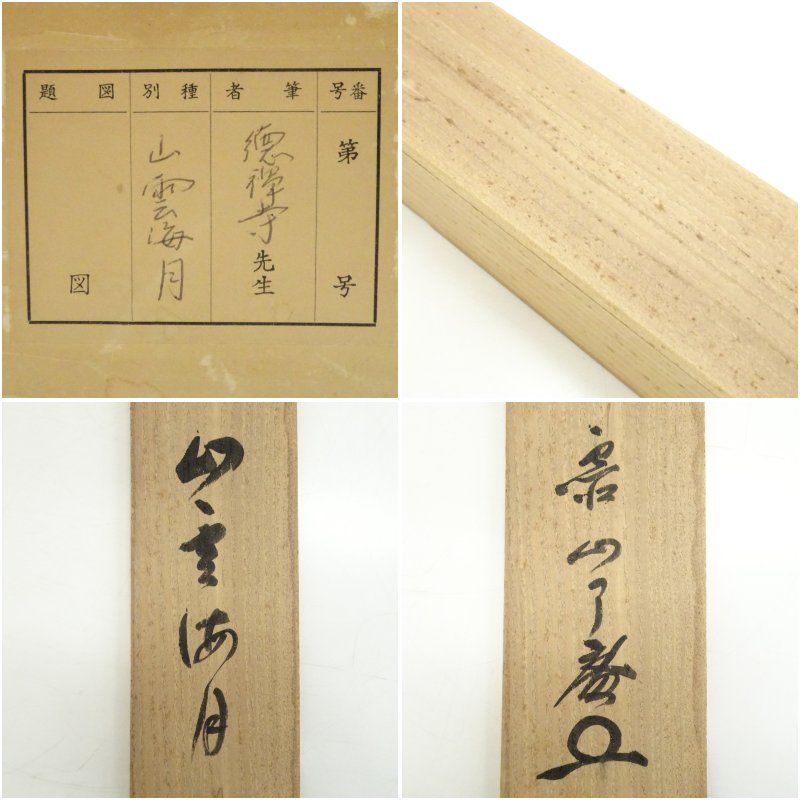 番号
第 号
筆者
德禅寺先生
種別
山雲海月
図題
図
山雲海月
紫山了庵